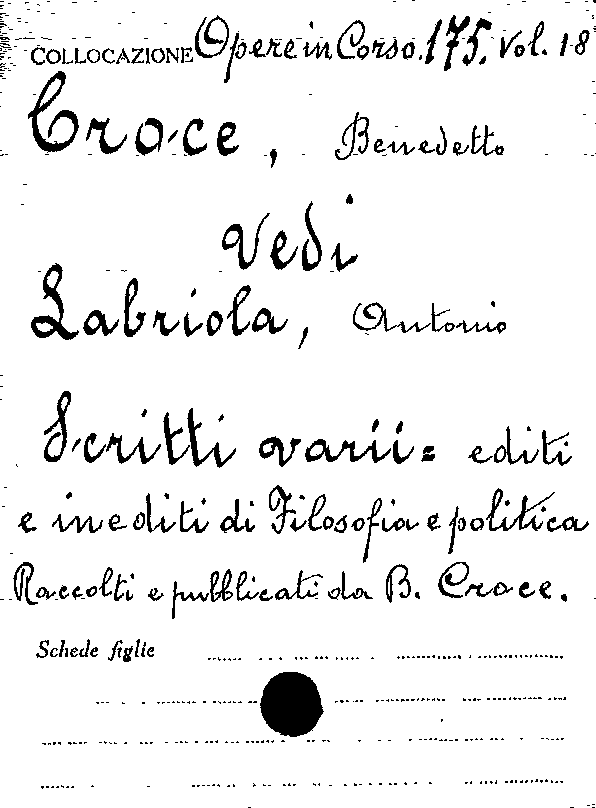 COLLOCAZIONE Opere in Corso. 175. Vol. 18
Croce, Benedetto
Vedi
Labriola, Antonio
Scritti varii = editi
e inediti di Filosofia e politica
Raccolti e pubblicati da B. Croce.
Schede figlie